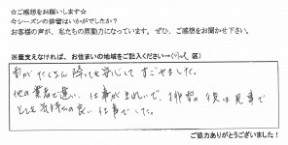 ☆ご感想をお願いします☆
今シーズンの除雪はいかがでしたか？
お客様の声が、私たちの原動力になっています。ぜひ、ご感想をお聞かせ下さい。
※差支えなければ、お住まいの地域をご記入ください→( 区)
雪がたくさん降っても安心してすごせました。
他の業者と違い、仕事がきれいで、排雪の後は見事で
とても気持の良い仕事でした。
ご協力ありがとうございました！